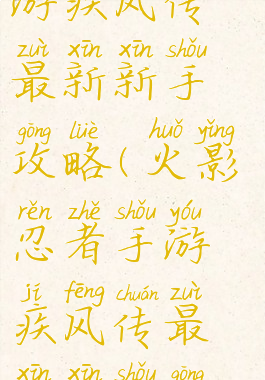 游疾风传
zuì xīn xīn shǒu
最新新手
gōng lüè huǒ yǐng
攻略(火影
rěn zhě shǒu yóu
忍者手游
jí fēng chuán zuì
疾风传最
xīn xīn shǒu gōng